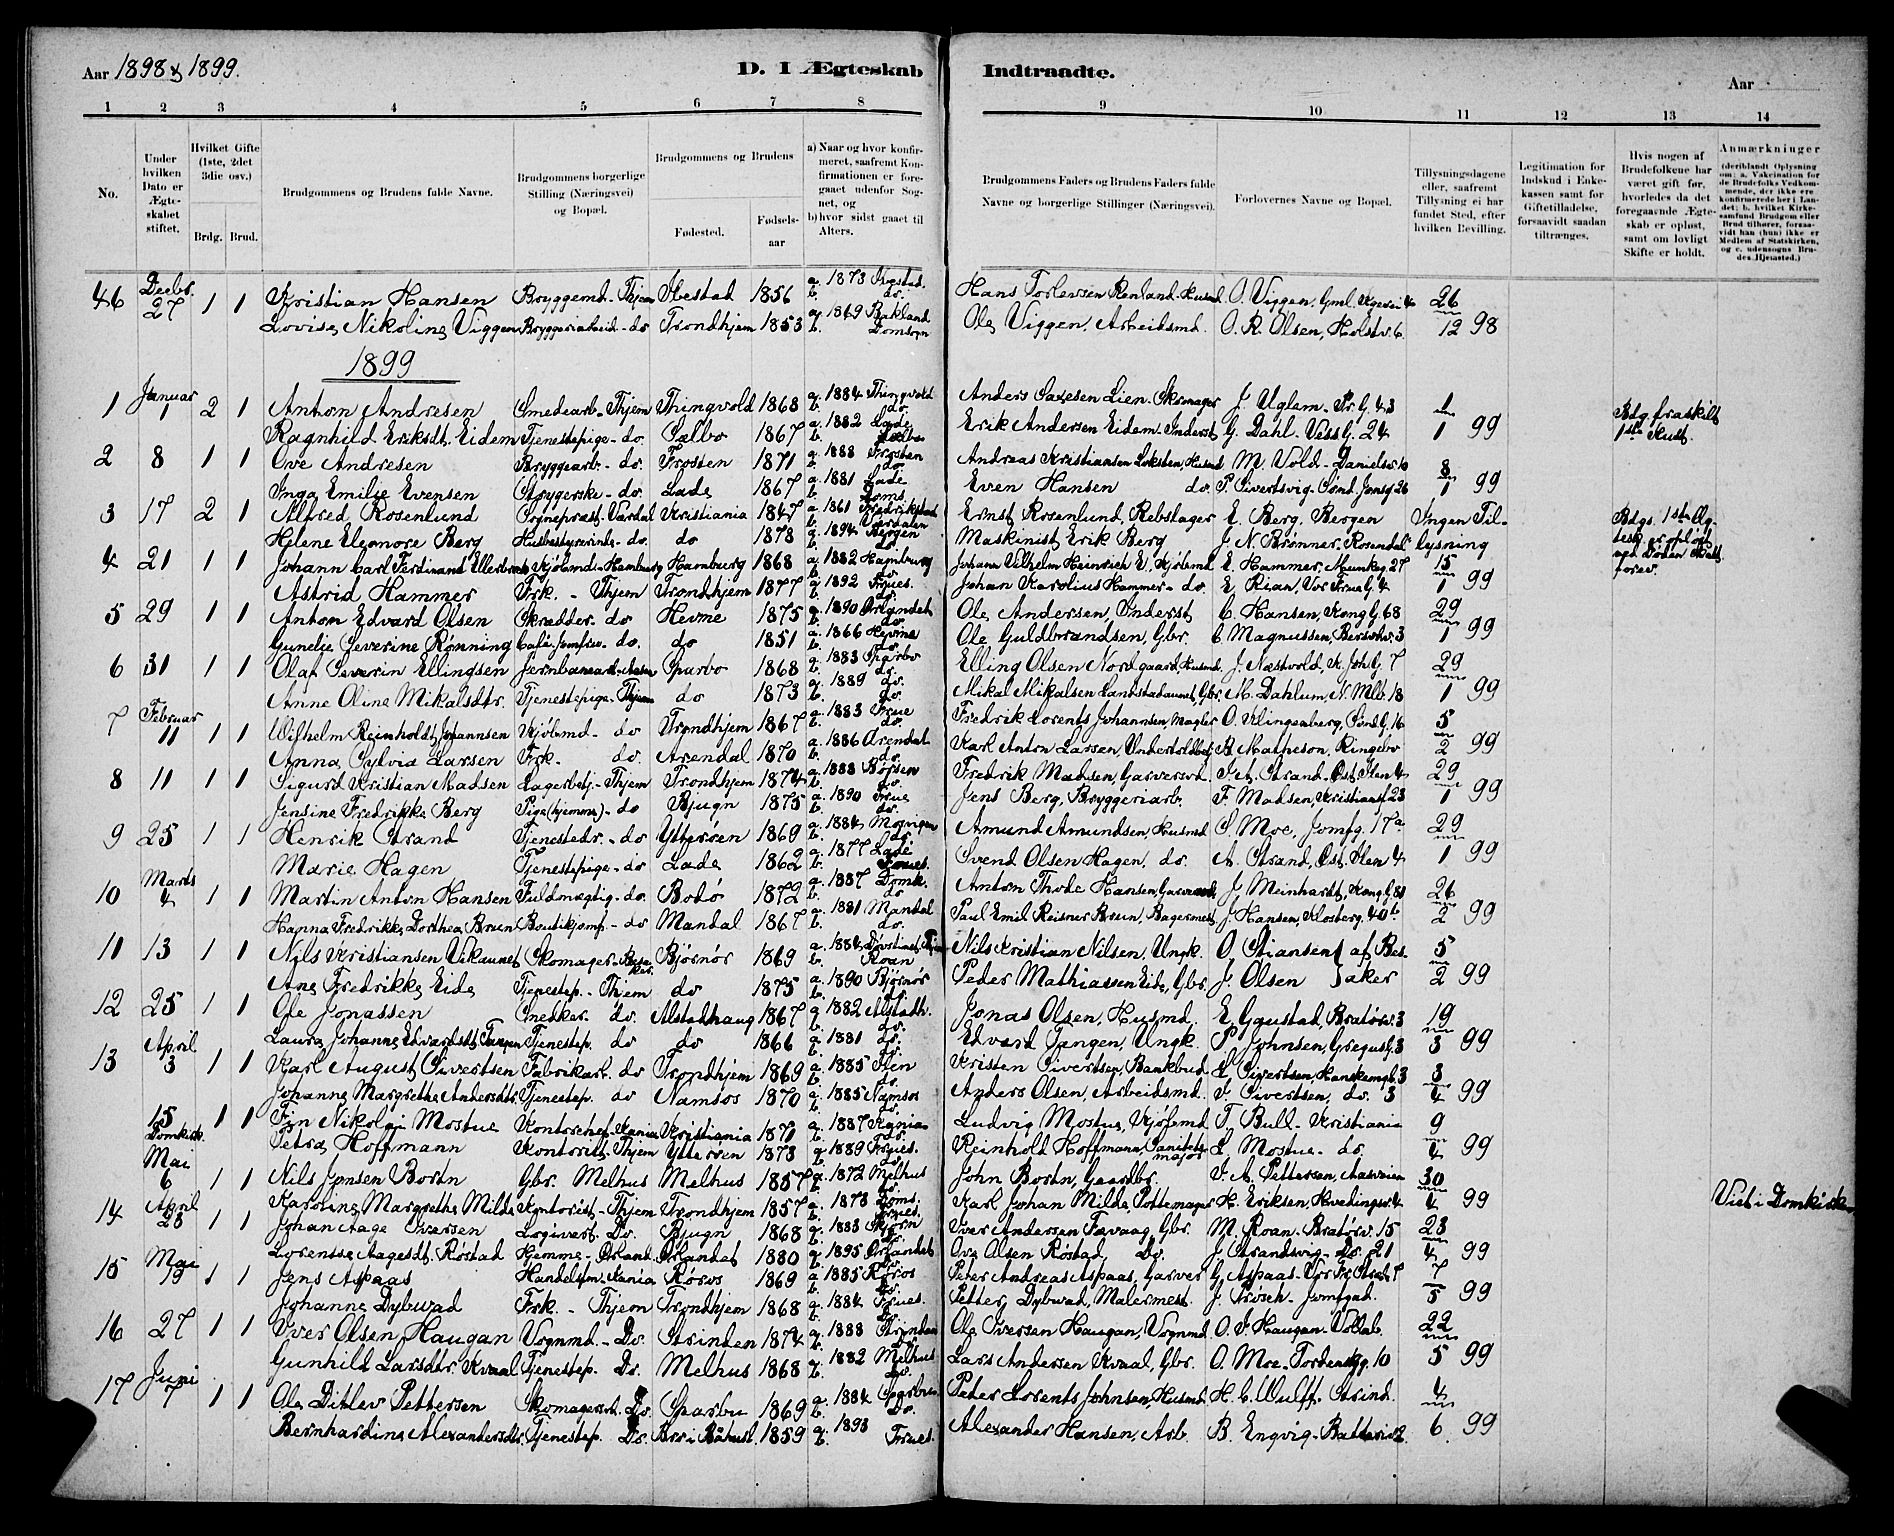 Aar 1898 & 1899.
D. I Ægteskab
Indtraadte.
Aar
1 2 3 4 5 6 7 8 9 10 11 12 13 14
No.
Under hvilken Dato er Ægteskabet stiftet.
Hvilket Gifte (1ste, 2det 3die osv.)
Brdg. Brud.
Brudgommens og Brudens fulde Navne.
Brudgommens borgerlige Stilling (Næringsvei) og Bopæl.
Brudgommens og Brudens
Fødested.
Fødsels-aar
a) Naar og hvor konfirmeret, saafremt Konfirmationen er foregaaet udenfor Sognet, og
b) hvor sidst gaaet til Alters.
Brudgommens Faders og Brudens Faders fulde Navne og borgerlige Stillinger (Næringsvei).
Forlovernes Navne og Bopæl.
Tillysningsdagene eller, saafremt Tillysning ei har fundet Sted, efter hvilken Bevilling.
Legitimation for Indskud i Enkekassen samt for Giftetilladelse, forsaavidt saadan tiltrænges.
Hvis nogen af Brudefolkene har været gift før, hvorledes da det foregaaende Ægteskab er opløst, samt om lovligt Skifte er holdt.
Anmærkninger
(deriblandt Oplysning om: a. Vakcination for de Brudefolks Vedkommende, der ikke ere konfirmerede her i Landet; b. hvilket Kirkesamfund Brudgom eller Brud tilhører, forsaavidt han (hun) ikke er Medlem af Statskirken, og c. udensogns Brudes Hjemsted.)
46 Decbr. 27 1 1 Kristian Hansen Bryggemd - Thjem Ibestad 1856 a. 1873 Ibestad. b. do. Hans Torlersen Renland. Husmd O. Viggen, Gml. 26
Lovise Nikoline Viggen Bryggeriarbeid - do Trondhjem 1853 a. 1869 Bakland b. Domsogn Ole Viggen, Arbeidsmd. O. R. Olsen, Holstv. 6. 12 98
1899
1 Januar 1 2 1 Anton Andresen Smedearb - Thjem Thingvold 1863 a. 1884 Thingvold b. do. Anders Lien. Skomager J. Uglem - Pr. G. 43 1 Bdg. fraskilt
Ragnhild Eriksdt. Eidem Tjenestepige - do. Selbo 1867 a. 1882 Lade b. Selbo Erik Andersen Eidem - Inderst G. Dahl - VessG. 24 1 99 1ste Hust.
2 8 1 1 Ove Andresen Bryggearb - do. Frosten 1871 a. 1888 Frosten b. do. Andreas Kristiansen Loksten, Husmd M. Vold - Danielsv. 10 8
Inga Emilie Evensen Strygerske - do. Lade 1867 a. 1881 Lade b. Doms. Even Hansen do. P. Sivertsvig - Sønd. Jomfg 26 1 99
3 17 2 1 Alfred Rosenlund Sogneprest - Værdal Kristiania 1847 a. 1861 Fredrikstad b. Værdalen Ernst Rosenlund, Rebslager E. Berg, Bergen Ingen Til- Bdgs. 1ste Æg-
Helene Eleonore Berg Husbestyrerinde - do. do 1878 a. 1894 Bergen b. do. Maskinist Erik Berg J. N. Brønner - Rosendal lysning tesk. er opløst ved Døden Skift. forev.
4 21 1 1 Johann Carl Ferdinand Ellerbrock Kjøbmd - Hamburg Hamburg 1868 a. 1882 Hamburg b. do. Johann Vilhelm Heinrich E., Kjøbmd E. Hammer, Munkeg. 27 15
Astrid Hammer Frk. - Thjem Trondhjem 1877 a. 1892 Frues. b. do. Johan Karolius Hammer - do. E. Rian, Vor Frue G. 4 1 99
5 29 1 1 Anton Edvard Olsen Skrædder. do Hevne 1875 a. 1890 Ørlandet b. do. Ole Andersen, Inderst C. Hansen, Kong G. 68 29
Gunelie Severine Rønning Café-Jomfru - do. do 1851 a. 1866 Hevne b. do. Ole Guldbrandsen, Gbr. C. Magnussen, 3 1 99
6 31 1 1 Olaf Severin Ellingsen Sparbo 1868 a. 1883 Sparbo b. do. Elling Olsen Nordgaard, Husmd. J. Næstvold, K. Joh G. 7 29
Anne Oline Mikalsdtr. Tjenestepige - Thjem do 1873 a. 1889 do. b. do. Mikal Mikalsen Landstadaunet, Gbr. M. Dahlum, N. Mlb 18 1 99
7 Februar 11 1 1 Wilhelm Reinholdt Johannsen Kjøbmd - do Trondhjem 1867 a. 1883 Frue b. do. Fredrik Lorents Johannsen, Mægler O. Klingenberg, Sønd G. 16 5
Anna Sylvia Larsen Frk. do. Arendal 1870 a. 1886 Arendal b. do. Karl Anton Larsen, B. Matheson, Ringebo 2 99
8 11 1 1 Sigurd Kristian Madsen Lagerbetj - Thjem Trondhjem 1874 a. 1888 Børsen b. do. Fredrik Madsen, Garversvd. Strand - Øst. Ilen 4 29
Jensine Fredrikke Berg Pige (hjemme) - do Bjugn 1875 a. 1890 Frue b. do. Jens Berg, Bryggeriarb. F. Madsen, Kristiansf 23 1 99
9 25 1 1 Henrik Strand Tjenestedr. - do Ytterøen 1869 a. 1884 Mosvigen b. do. Amund Amundsen, Husmd S. Moe, Jomfg. 17a 29
Marie Hagen Tjenestepige - do Lade 1862 a. 1877 Lade b. Frues. Svend Olsen Hagen, do. A. Strand, Øst. Ilen 4 1 99
10 Marts 4 1 1 Martin Anton Hansen Fuldmægtig - do. Bodø 1872 a. 1887 Domk. b. do Anton Thode Hansen, J. Meinhardt, Kong G. 80 26
Hanna Fredrikke Dorthea Bruun Boutikjomf - do Mandal 1867 a. 1881 Mandal b. do. Paul Emil Reisner Bruun, Bagermest J. Hansen, Klosterg. 40b 2 99
11 13 1 1 Nils Kristiansen Vikaunet Skomager - Besaker. Bjørnør 1869 a. 1884 b. Roan Nils Kristian Nilsen, Ungk. O. Stiansen } af Bes- 5
Ane Fredrikke Eide Tjenestep. - Thjem do 1875 a. 1890 Bjørnør b. do. Peder Mathiassen Eide, Gbr. J. Olsen } aker 2 99
12 25 1 1 Ole Jonassen Snedker. do. Alstadhaug 1867 a. 1882 Alstadh. b. do. Jonas Olsen, Husmd. E. Gaustad, Bratørv. 3 19
Laura Johanne Edvardsdt. Tangen Tjenestep. do do 1866 a. 1881 do. b. do. Edvard Tangen, Ungk. P. Johnsen, Gregus G. 3 3 99
13 April 3 1 1 Karl August Sivertsen Fabrikarb. do Trondhjem 1869 a. 1885 Ilen b. do. Kristen Sivertsen, Bankbud L. Sivertsen, Hanskemgb. 3 3
Johanne Margrethe Andersdtr. Tjenestep. do Namsos 1870 a. 1885 Namsos b. do. Anders Olsen, Arbeidsmd. S. Sivertsen, do. 3 4 99
15 Domkirk. 1 1 Fin Nikolai Mostue Kontorchef - Kania Kristiania 1871 a. 1887 Kania b. do. Ludvig Mostue, Kjøbmd T. Bull - Kristiania 9
Petra Hoffmann Kontorist - Thjem Ytterøen 1873 a. 1889 Frues. b. do. Reinhold Hoffmann, Sanitetsmajor L. Mostue - do. 4 99
Mai 6 1 1 Nils Jonsen Bortn Gbr. Melhus Melhus 1857 a. 1872 Melhus b. do. John Bortn, Gaardbr. J. A. Pettersen, 30
Karoline Margrethe Milde Kontorist - Thjem Trondhjem 1857 a. 1873 Doms. b. Frues. Karl Johan Milde, Pottemager H. Eriksen, Hvedingsv. 4 4 99 Viet i Domkirk.
14 April 23 1 1 Johan Aage Iversen Løgivert. Do. Bjugn 1868 a. 1883 Stjørn b. do. Iver Andersen Fævaag, Gbr. M. Roan - Bratørv. 15 23
Lorentse Aagesdt. Røstad Hjemme - Ørland. Ørlandet 1880 a. 1895 Ørlandet b. Do. Ove Olsen Røstad, Do. J. Strandsvig - Do. 21 4 99
15 Mai 19 1 1 Jens Aspaas Handelsfm. Kania Røros 1869 a. 1885 Røros b. Do. Peter Andreas Aspaas, Garver G. Aspaas - Vor Fr. Stræd 7 7
Johanne Dybwad Frk. - Thjem Trondhjem 1868 a. 1884 Frues. b. Do. Petter Dybwad, Malermest. J. Trosch - Jomfgad. 5 99
16 27 1 1 Iver Olsen Haugan Vognmd. - Do. Strinden 1874 a. 1888 Strinden b. Do. Ole Iversen Haugan, Vognmd O. I. Haugan - Vollab. 22
Gunhild Larsdtr. Kvaal Tjenestep. Do. Melhus 1868 a. 1882 Melhus b. Do. Lars Andersen Kvaal, Gbr. O. Moe - Tordenskg. 10 5 99
17 Juni 7 1 1 Ole Ditlev Pettersen Skomagersvd. Do. Sparbu 1869 a. 1884 Sparbu b. Do. Peder Lorents Johnsen, Husmd H. C. Wulff. Strind. 4
Bernhardine Alexandersdtr. Tjenestep. Do. Bro i Båhusl. 1859 a. 1893 b. Frues. Alexander Hansen, Arb. B. Engvig - Batteriv 2. 6 99